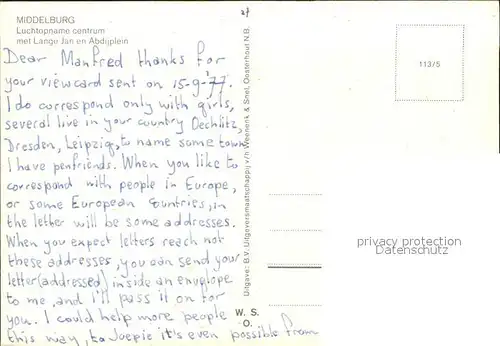 MIDDELBURG
Luchtopname centrum
met Lange Jan en Abdijplein
Dear Manfred thanks for
your viewcard sent on 15-9-'77.
I do correspond only with girls,
several live in your country Oechlitz,
Dresden, Leipzig, to name some town
I have penfriends. When you like to
correspond with people in Europe,
or some European Countries, in
the letter will be some addresses.
When you expect letters reach not
these addresses, you can send your
letter (addressed) inside an envelope
to me, and I'll pass it on for
you. I could help more people
this way, to Joepie it's even possible from
Uitgave: B.V. Uitgeversmaatschappij v/h Weenenk & Snel, Oosterhout N.B.
W. S.
O.
11375
privacy protection
Datenschutz